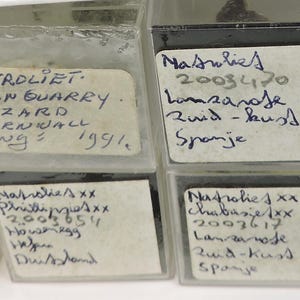 RDLIET.
N QUARRY.
ZARD
RNWALL
1991.
Natroliet
2003470
Lanzarote
Zuid-kust
Spanje
Natroliet xx
Phillipsiet xx
2001651
Howenegg
Hegau
Duitsland
Natroliet xx
chabasiet xx
2003617
Lanzarote
Zuid-Kust
Spanje